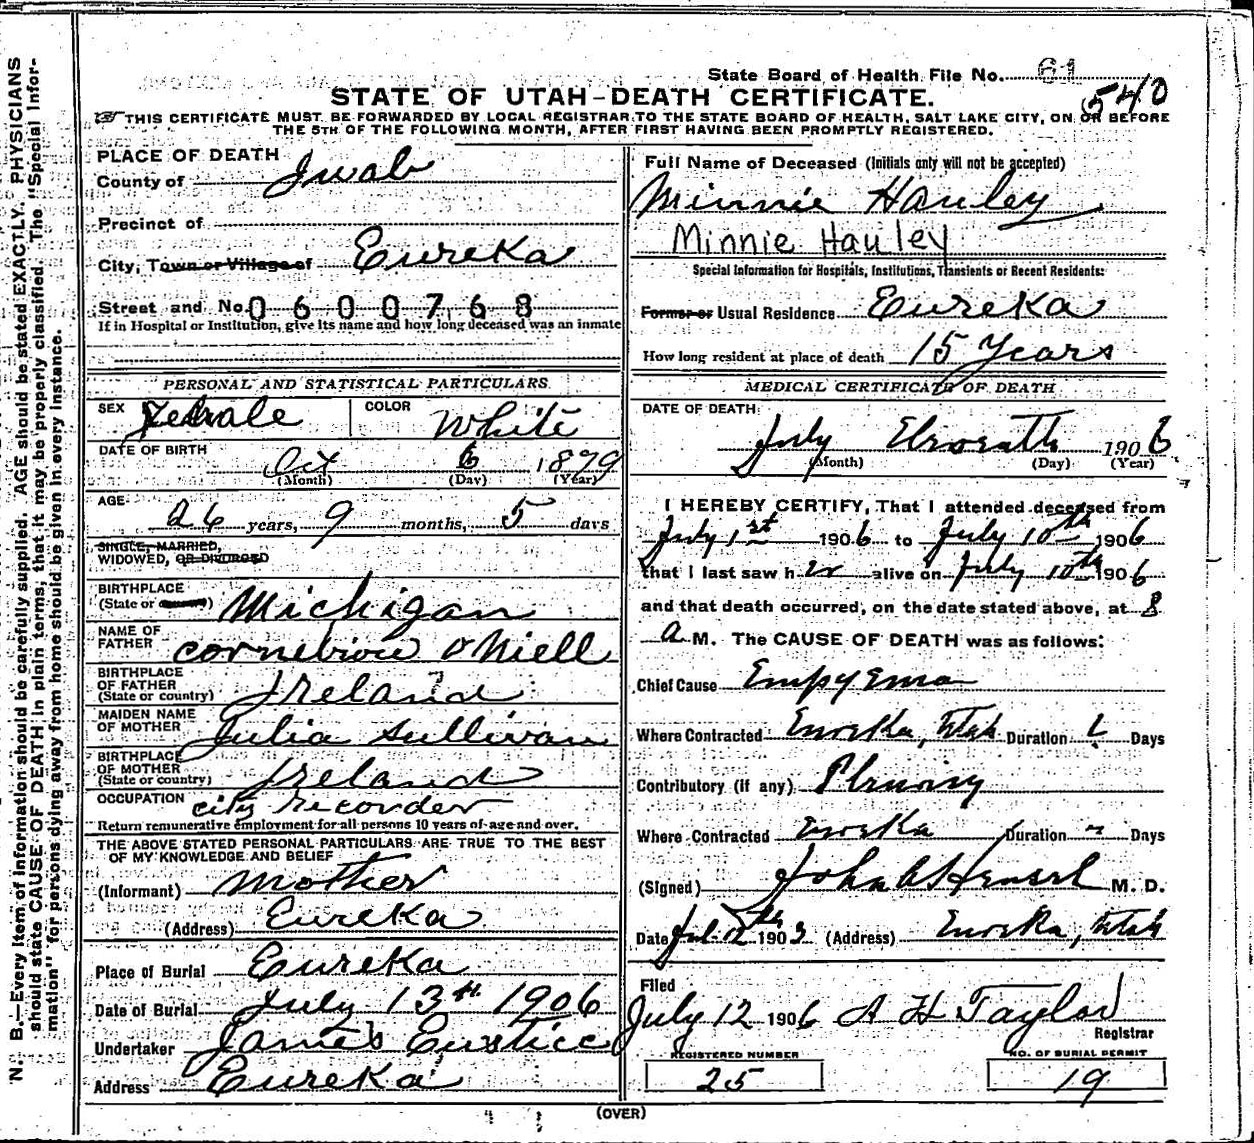 State Board of Health File No. 61
540
STATE OF UTAH-DEATH CERTIFICATE.
THIS CERTIFICATE MUST BE FORWARDED BY LOCAL REGISTRAR TO THE STATE BOARD OF HEALTH, SALT LAKE CITY, ON OR BEFORE
THE 5TH OF THE FOLLOWING MONTH, AFTER FIRST HAVING BEEN PROMPTLY REGISTERED.
PLACE OF DEATH
County of Juab
Precinct of
City, Town or Village of Eureka
Street and No. 0600768
If in Hospital or Institution, give its name and how long deceased was an inmate
PERSONAL AND STATISTICAL PARTICULARS
SEX Female COLOR White
DATE OF BIRTH
Oct 6 1879
(Month) (Day) (Year)
AGE
26 years, 9 months, 5 days
SINGLE, MARRIED,
WIDOWED, OR DIVORCED
BIRTHPLACE
(State or country) Michigan
NAME OF
FATHER O'Niell
BIRTHPLACE
OF FATHER
(State or country) Ireland
MAIDEN NAME
OF MOTHER Julia Sullivan
BIRTHPLACE
OF MOTHER
(State or country) Ireland
OCCUPATION city recorder
Return remunerative employment for all persons 10 years of age and over.
THE ABOVE STATED PERSONAL PARTICULARS ARE TRUE TO THE BEST
OF MY KNOWLEDGE AND BELIEF
(Informant) Mother
(Address) Eureka
Place of Burial Eureka
Date of Burial July 13th 1906
Undertaker James Eustice
Address Eureka
Full Name of Deceased (Initials only will not be accepted)
Minnie Hauley
Minnie Hauley
Special Information for Hospitals, Institutions, Transients or Recent Residents:
Former or Usual Residence Eureka
How long resident at place of death 15 Years
MEDICAL CERTIFICATE OF DEATH
DATE OF DEATH
July 1906
(Month) (Day) (Year)
I HEREBY CERTIFY, That I attended deceased from
July 1st 1906 to July 10th 1906
that I last saw her alive on July 10th 1906
and that death occurred, on the date stated above, at 8
a M. The CAUSE OF DEATH was as follows:
Chief Cause Empyema
Where Contracted Eureka, Utah Duration Days
Contributory (if any) Pleurisy
Where Contracted Eureka Duration Days
(Signed) John M. D.
Date 12th 190 (Address) Eureka, Utah
Filed
July 12 1906 A H Taylor
Registrar
REGISTERED NUMBER
25
NO. OF BURIAL PERMIT
19
(OVER)
N. B.—Every item of information should be carefully supplied. AGE should be stated EXACTLY. PHYSICIANS
should state CAUSE OF DEATH in plain terms, that it may be properly classified. The "Special Infor-
mation" for persons dying away from home should be given in every instance.